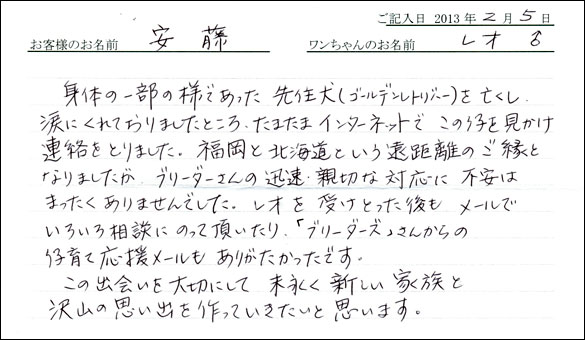 ご記入日 2013年2月5日
お客様のお名前 安藤 ワンちゃんのお名前 レオ ♂
身体の一部の様であった 先住犬(ゴールデンレトリバー)を亡くし
涙にくれておりましたところ、たまたま インターネットで この仔を見かけ
連絡をとりました。福岡と北海道という遠距離のご縁と
なりましたが、ブリーダーさんの 迅速・親切な対応に 不安は
まったくありませんでした。レオを 受けとった後も メールで
いろいろ相談にのって頂いたり、「ブリーダーズ」さんからの
仔育て応援メールも ありがたかったです。
この出会いを大切にして 末永く 新しい 家族と
沢山の思い出を作っていきたいと 思います。